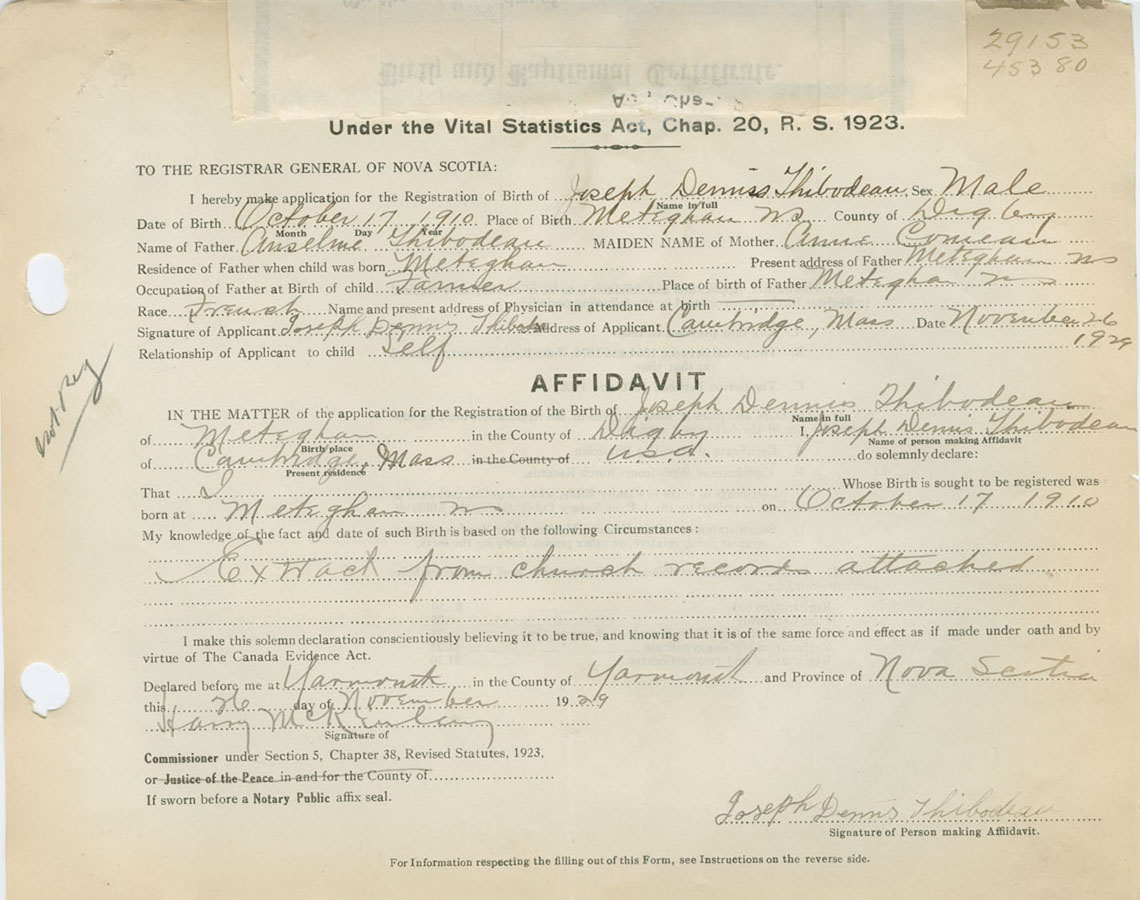 29153
45380
Birth and Baptismal Certificate.
Under the Vital Statistics Act, Chap. 20, R. S. 1923.
TO THE REGISTRAR GENERAL OF NOVA SCOTIA:
I hereby make application for the Registration of Birth of Joseph Dennis Thibodeau Sex Male
Name in full
Date of Birth October 17 1910 Place of Birth Meteghan NS County of Digby
Month Day Year
Name of Father Anselme Thibodeau MAIDEN NAME of Mother Anna Comeau
Residence of Father when child was born Meteghan Present address of Father Meteghan NS
Occupation of Father at Birth of child Farmer Place of birth of Father Meteghan NS
Race French Name and present address of Physician in attendance at birth
Signature of Applicant Joseph Dennis Thibodeau Address of Applicant Cambridge, Mass Date November 26
1929
Relationship of Applicant to child Self
Not Reg
AFFIDAVIT
IN THE MATTER of the application for the Registration of the Birth of Joseph Dennis Thibodeau
Name in full
of Meteghan in the County of Digby I, Joseph Dennis Thibodeau
Birth place Name of person making Affidavit
of Cambridge, Mass in the County of U.S.A. do solemnly declare:
Present residence
That I Whose Birth is sought to be registered was
born at Meteghan NS on October 17 1910
My knowledge of the fact and date of such Birth is based on the following Circumstances:
Extract from church records attached
I make this solemn declaration conscientiously believing it to be true, and knowing that it is of the same force and effect as if made under oath and by
virtue of The Canada Evidence Act.
Declared before me at Yarmouth in the County of Yarmouth and Province of Nova Scotia
this 26 day of November 1929
Harry
Signature of
Commissioner under Section 5, Chapter 38, Revised Statutes, 1923,
or Justice of the Peace in and for the County of
If sworn before a Notary Public affix seal.
Joseph Dennis Thibodeau
Signature of Person making Affidavit.
For Information respecting the filling out of this Form, see Instructions on the reverse side.